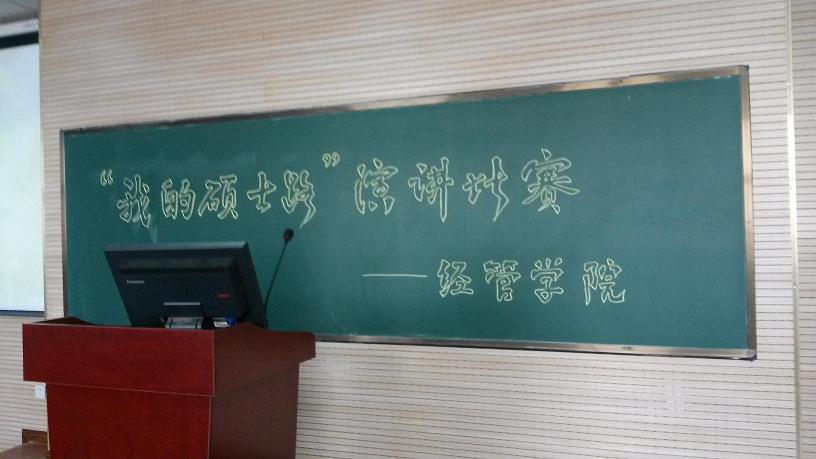 “我的硕士路”演讲比赛
——经管学院
lenovo